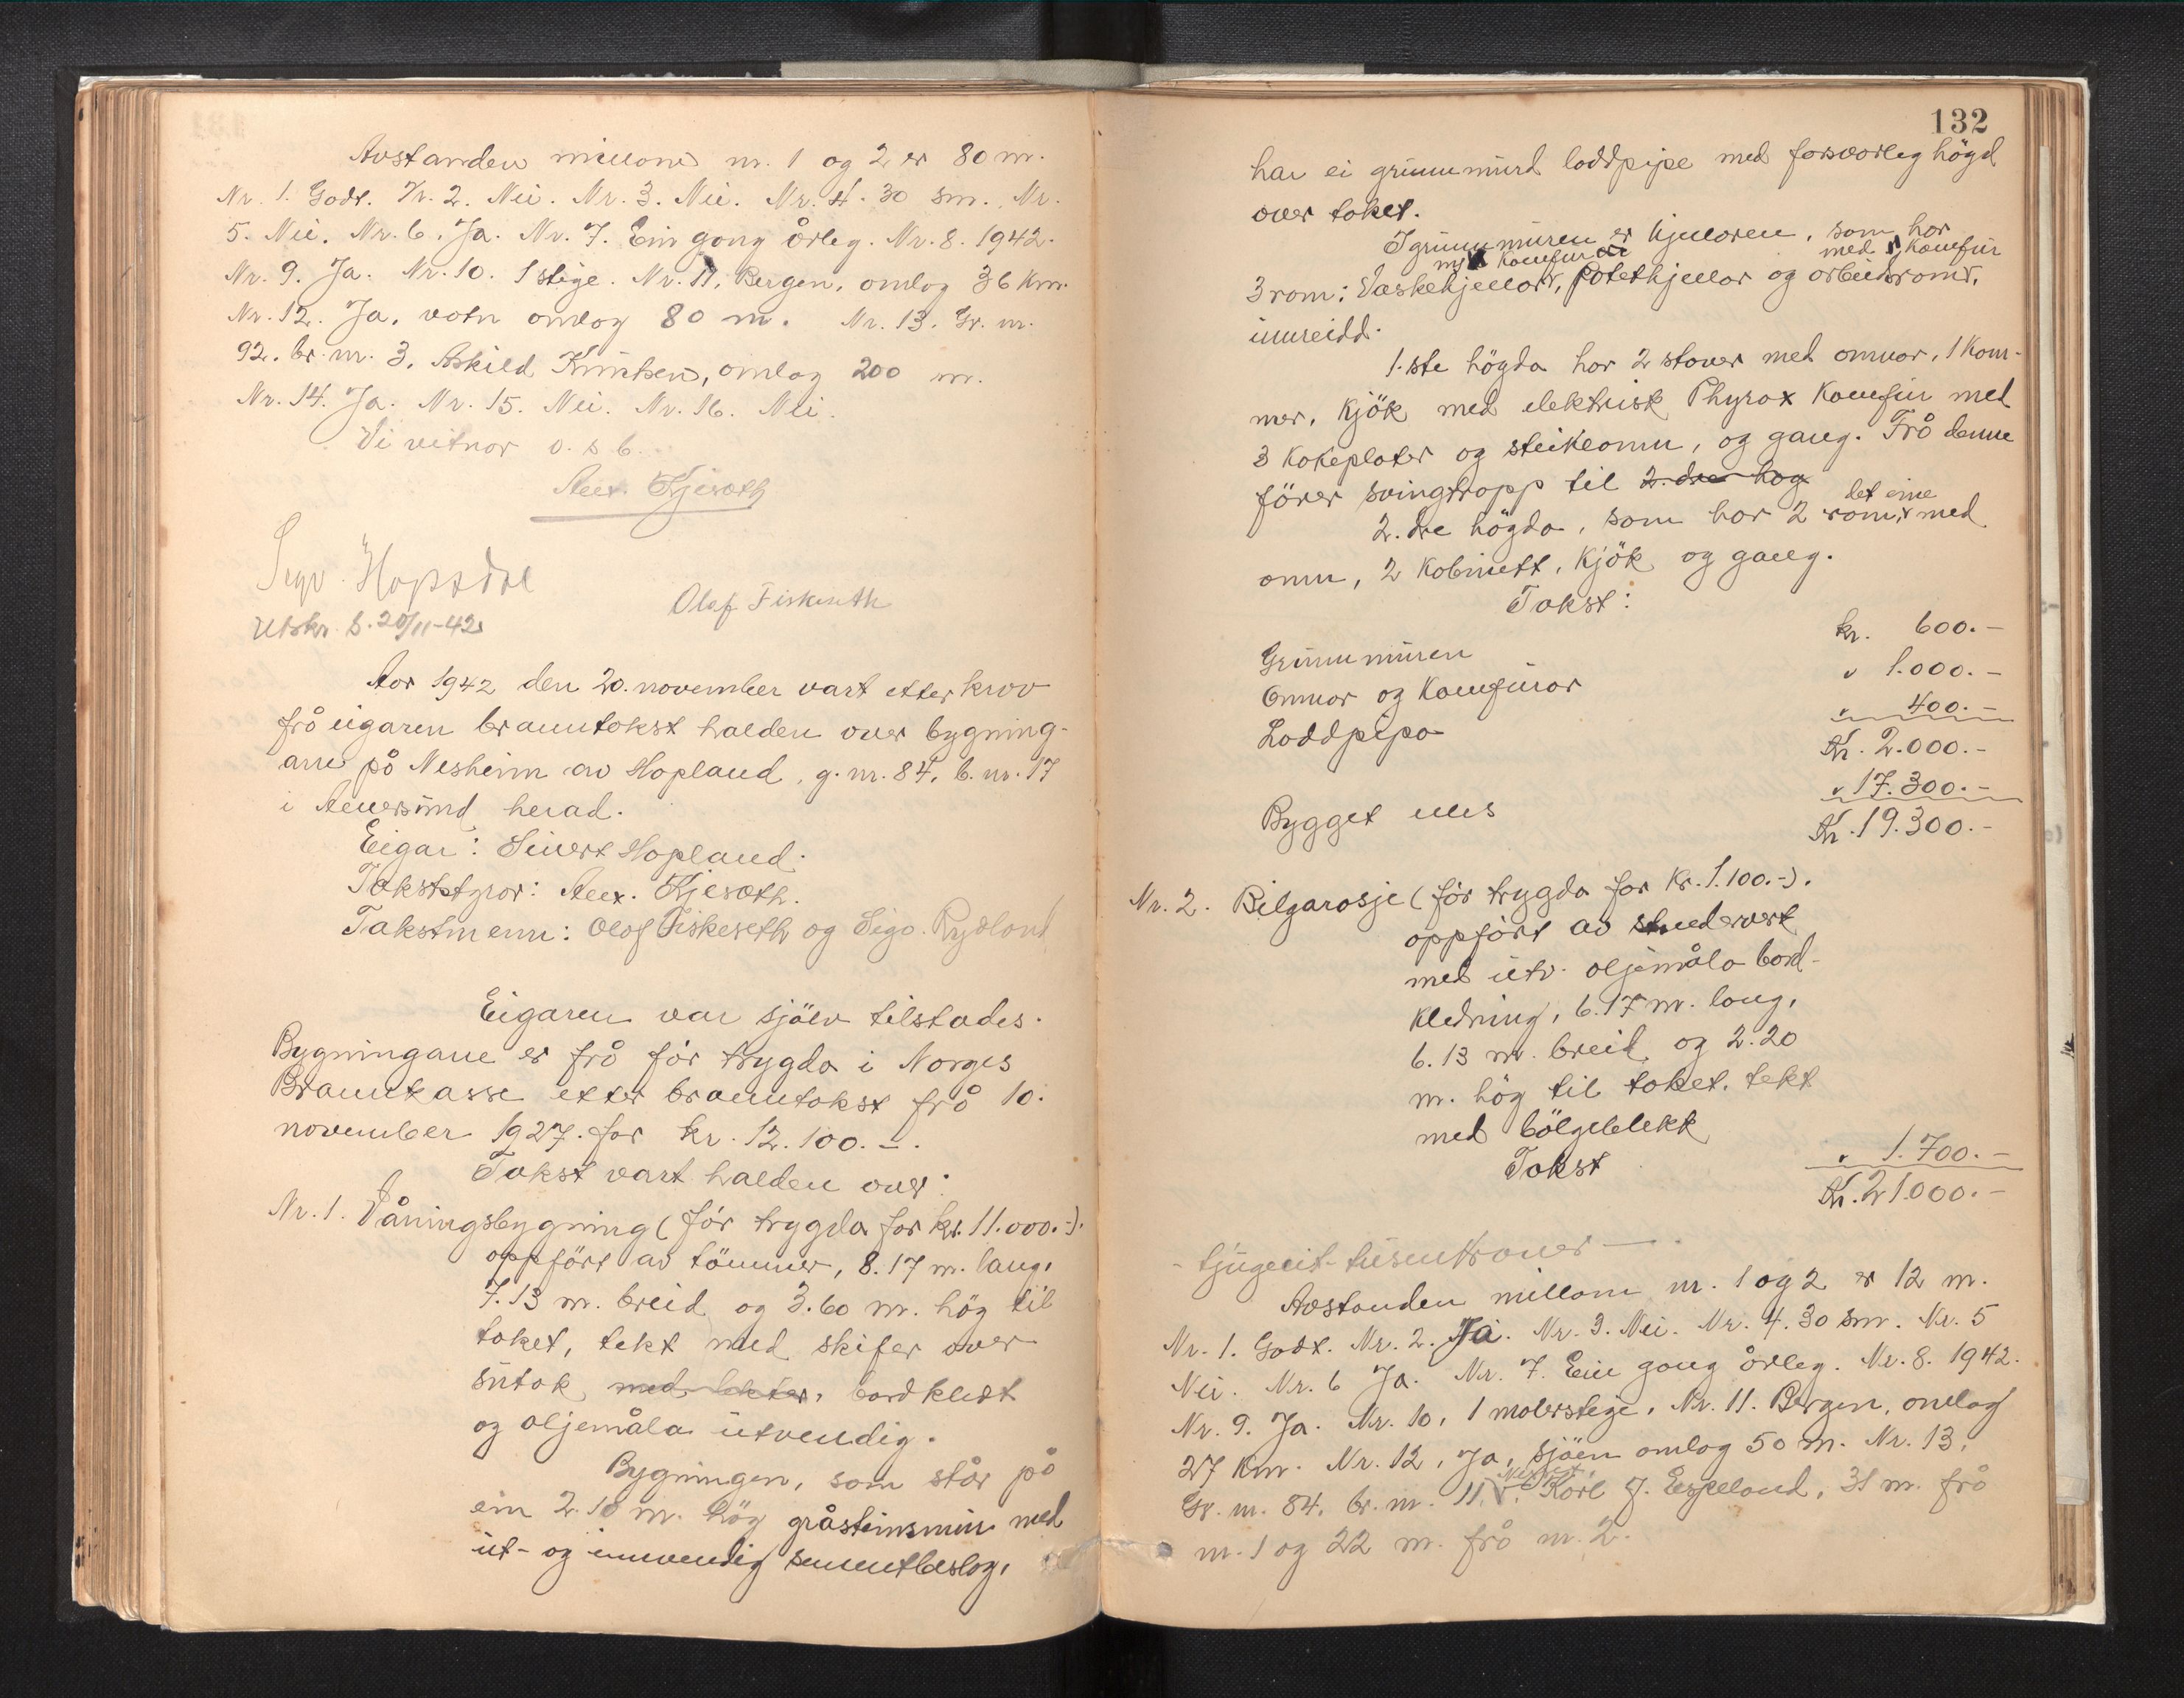 Avstanden millom nr. 1 og 2 er 80 m.
Nr. 1. Godt. Nr. 2. Nei. Nr. 3. Nei. Nr. 4. 30 sm. Nr.
5. Nei. Nr. 6. Ja. Nr. 7. Ein gong årleg. Nr. 8. 1942.
Nr. 9. Ja. Nr. 10. 1 stige. Nr. 11. Bergen, omlag 36 km.
Nr. 12. Ja. vatn omlag 80 m. Nr. 13. Gr. nr.
92. br. nr. 3. Askild omlag 200 m.
Nr. 14. Ja. Nr. 15. Nei. Nr. 16. Nei.
Vi vitnar o. s b.
Alex. Kjesæth
Sigv. Hopsdal
Olaf Fiskeseth
Utskr. S. 20/11-42
Aar 1942 den 20. november vart etter krav
frå eigaren branntakst halden over bygning-
ane på Nesheim av Hopland, g. nr. 84, b. nr. 17
i Alversund herad.
Eigar: Sivert Hopland.
Takststyrar: Alex. Kjesæth.
Takstmenn: Olaf Fiskeseth og Sigv. Rydland
Eigaren var sjölv tilstades.
Bygningane er frå för trygda i Norges
Brannkasse etter branntakst frå 10.
november 1927. for kr. 12.100.–.
Takst vart halden over:
Nr. 1. Våningsbygning (för trygda for kr. 11.000.-).
oppfört av tömmer, 8.17 m. lang,
7.13 m. breid og 3.60 m. hög til
taket, tekt med skifer over
sutak med lekter, bordkledt
og oljemåla utvendig.
Bygningen, som står på
ein 2.10 m. hög gråsteinsmur med
ut- og innvendig sementbeslag,
132
har ei grunnmurd loddpipe med forsvarleg högd
over taket.
I grunnmuren er kjellaren, som har
my komfur med komfur
3 rom: Vaskekjellar, potetkjellar og arbeidsrom,
innreidd.
1.ste högda har 2 stover med omnar, 1 kam-
mer, kjök med elektrisk Phyrox komfur med
3 kokeplater og steikeomn, og gang. Frå denne
förer svingtrapp til 2.dre hög
det eine
2.dre högda, som har 2 rom, med
omn, 2 kabinett, kjök og gang.
Takst:
Grunnmuren kr. 600.–
Omnar og komfurar " 1.000.–
Loddpipa " 400.–
Kr. 2.000.–
Bygget elles " 17.300.–
Kr. 19.300.–
Nr. 2. Bilgarasje (för trygda for kr. 1.100.-).
oppfört av stenderverk
med utv. oljemåla bord-
kledning, 6.17 m. lang,
6.13 m. breid og 2.20
m. hög til taket. tekt
med bölgeblekk
Takst " 1.700.–
Kr. 21.000.–
- tjugeeit-tusenkroner —.
Avstanden millom nr. 1 og 2 er 12 m.
Nr. 1. Godt. Nr. 2. Ja. Nr. 3. Nei. Nr. 4. 30 sm. Nr. 5
Nei. Nr. 6 Ja. Nr. 7. Ein gong årleg. Nr. 8. 1942.
Nr. 9. Ja. Nr. 10. 1 malarstige. Nr. 11. Bergen, omlag
27 km. Nr. 12. Ja, sjöen omlag 50 m. Nr. 13.
Gr. nr. 84. br. nr. 11. Karl J. Espeland, 31 m. frå
nr. 1 og 22 m. frå nr. 2.